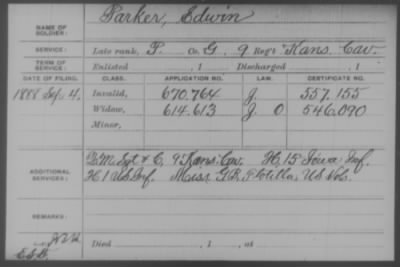 NAME OF SOLDIER: Parker, Edwin
SERVICE: Late rank, P. Co. G, 9 Reg't Kans. Cav.
TERM OF SERVICE: Enlisted , 1 Discharged , 1
DATE OF FILING. CLASS. APPLICATION NO. LAW. CERTIFICATE NO.
1888 Sep. 4, Invalid, 670.764 J. 557.155
Widow, 614.613 J. O 546.090
Minor,
ADDITIONAL SERVICES: Q.M. Sgt & C, 9" Kans. Cav. H, 15 Iowa Inf.
H 1 US Inf. Miss. Flotilla, US Vols.
REMARKS:
Died , 1 , at